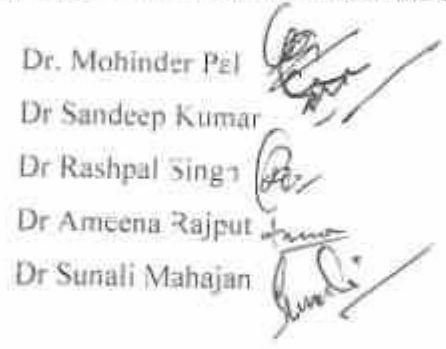 Dr. Mohinder Pal
Dr Sandeep Kumar
Dr Rashpal Singh
Dr Ameena Rajput
Dr Sunali Mahajan